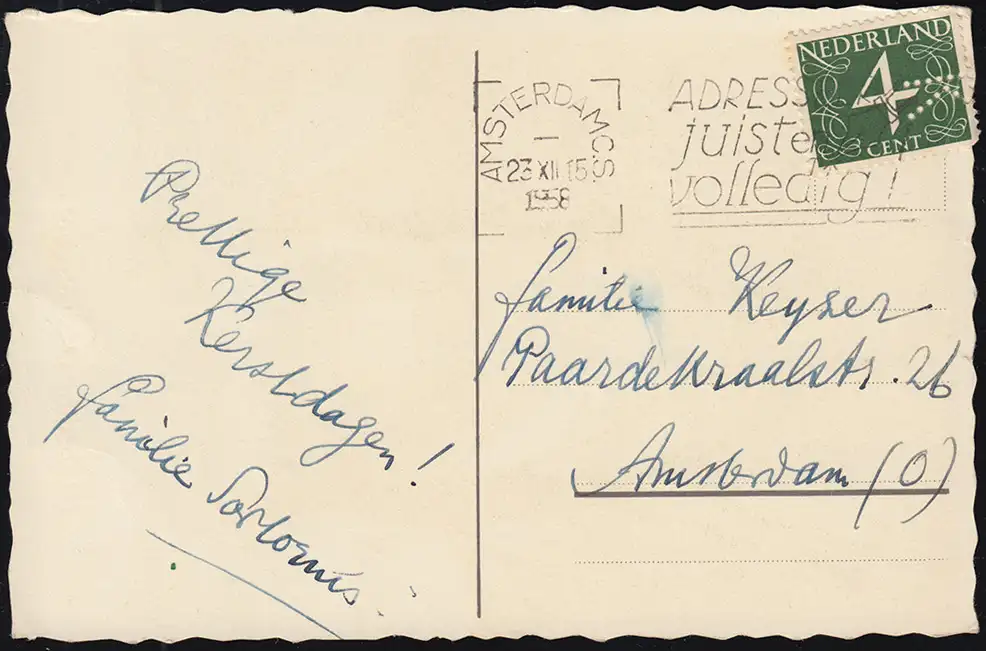 Prettige
Kerstdagen!
familie
AMSTERDAM C.S
23 XII 15
1958
ADRESS
juiste
volledig!
NEDERLAND
4
CENT
familie Keyser
Paardekraalstr. 26
Amsterdam (O)